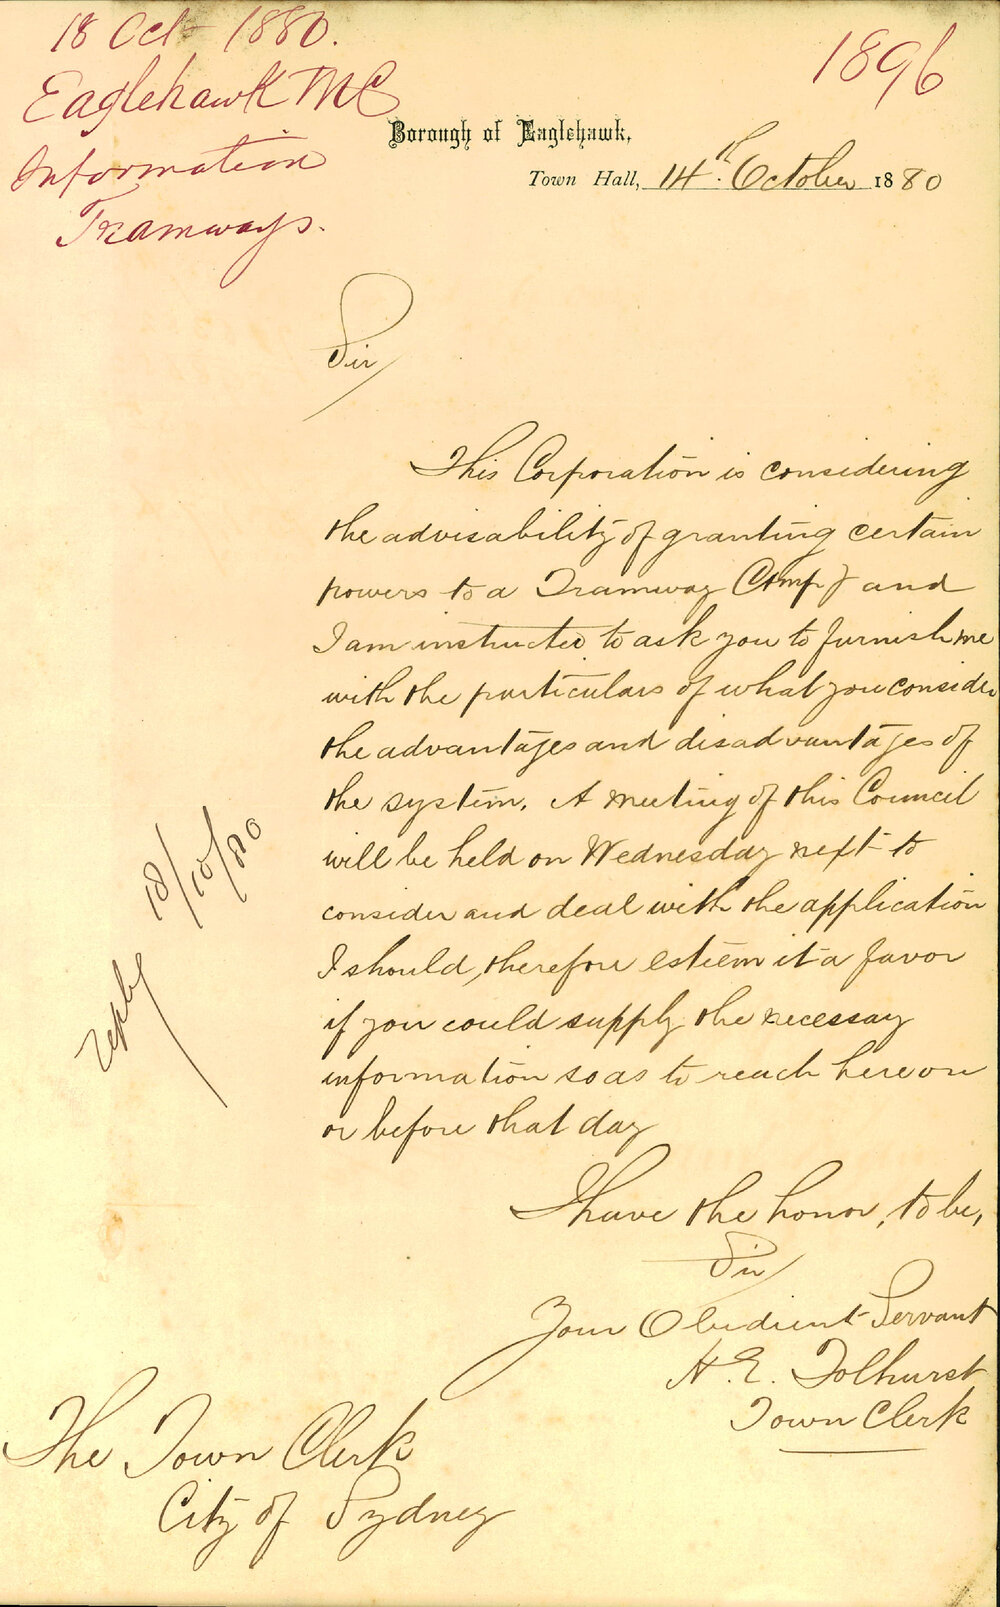 18 Oct 1880.
Eaglehawk MC
Information
Tramways.
1896
Borough of Eaglehawk,
Town Hall, 14th October 1880
Sir
This Corporation is considering
the advisability of granting certain
powers to a Tramway Compy and
I am instructed to ask you to furnish me
with the particulars of what you consider
the advantages and disadvantages of
the system. A meeting of this Council
will be held on Wednesday next to
consider and deal with the application
I should, therefore esteem it a favor
if you could supply the necessay
information so as to reach here on
or before that day
I have the honor, to be,
Sir
Your Obedient Servant
H. E. Tolhurst
Town Clerk
The Town Clerk
City of Sydney
Reply 18/10/80